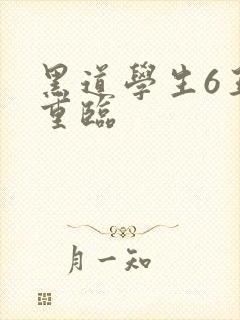 黑道學生6王
重臨
月一知